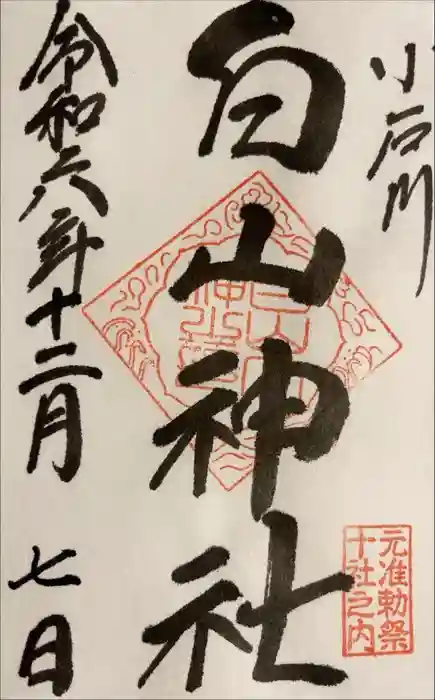 小石川
白山神社
令和六年十二月
七日
元准勅祭
十社之内